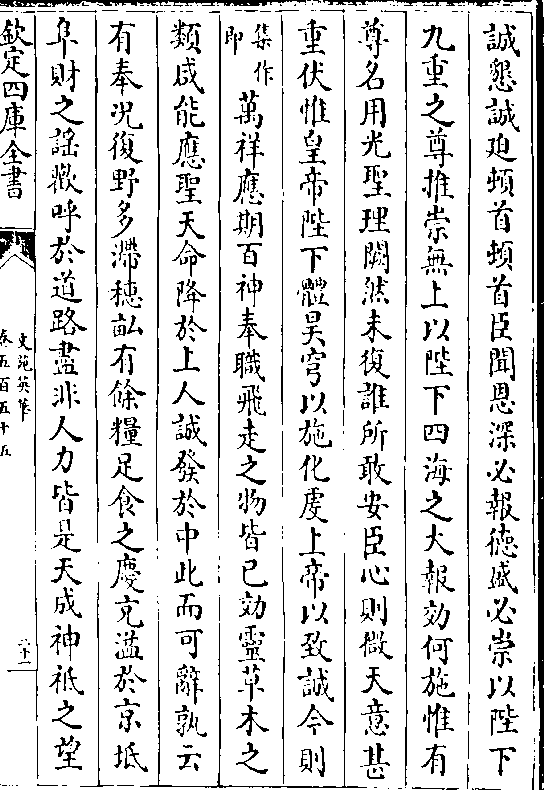 誠懇誠迫頓首頓首臣聞恩深必報德盛必崇以陛下
九重之尊推崇無上以陛下四海之大報効何施惟有
尊名用光聖理闕然未復誰所敢安臣心則微天意甚
重伏惟皇帝陛下體昊穹以施化虔上帝以致誠今則
集作
即
萬祥應期百神奉職飛走之物皆已効靈草木之
類咸能應聖天命降於上人誠發於中此而可辭孰云
有奉况復野多滯穗畝有餘糧足食之慶充溢於京坻
阜財之謡歡呼於道路盡非人力皆是天成神祗之望
欽定四庫全書
文苑英華
卷五百五十五
二十一